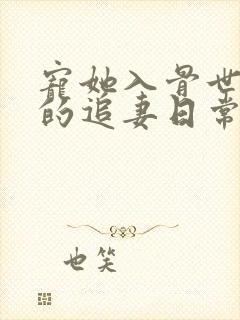 寵她入骨世
的追妻日常
也笑